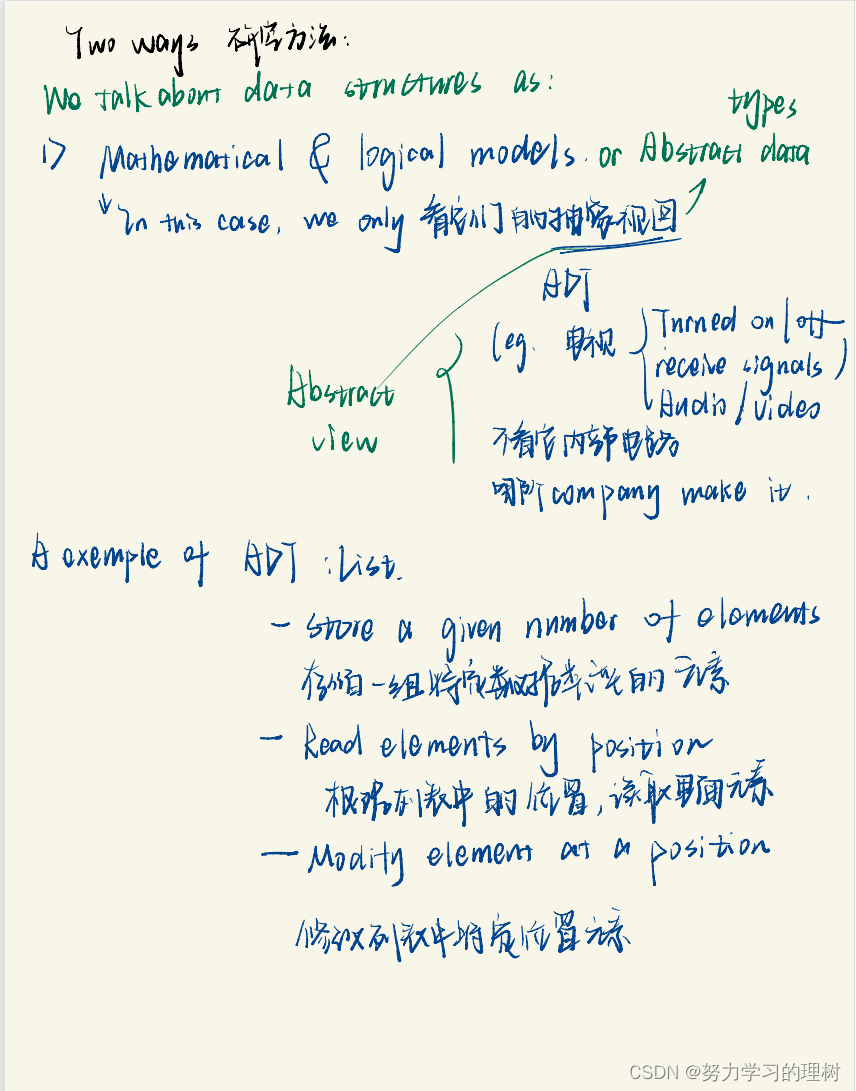 Two ways 研究方法:
We talk about data structures as:
1> Mathematical & logical models. or Abstract data types
↓ In this case, we only 看它们的抽象视图
ADT
(eg. 电视 Turned on/off
receive signals)
Audio/video
Abstract
view
不看它内部电路
哪个company make it.
A exemple of ADT :List.
- store a given number of elements
存储一组特定数据类型的元素
- Read elements by position
根据列表中的位置,读取里面元素
- Modify element at a position
修改列表中特定位置元素
CSDN @努力学习的理树